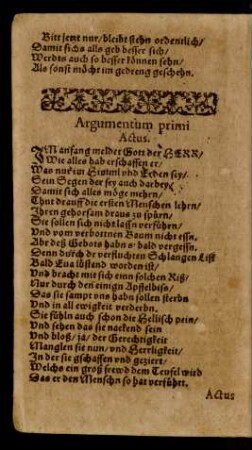 Bitt jetzt nur/ bleibt stehn ordentlich/
Damit sichs alls geb besser sich/
Werdts auch so besser können sehn/
Als sonst möcht im gedreng geschehn.
Argumentum primi
Actus.
IM anfang meldet Gott der HERR/
Wie alles hab erschaffen er/
Was nur im Himml vnd Erden sey/
Sein Segen der sey auch darbey/
Damit sich alles möge mehrn/
Thut drauff die ersten Menschen lehrn/
Ihren gehorsam draus zu spürn/
Sie sollen sich nicht lassn verführn/
Vnd vom verbotnen Baum nicht essn.
Abr deß Gebots habn s' bald vergessn.
Denn durch dr verfluchten Schlangen List
Bald Eua lüstend worden ist/
Vnd bracht mit sich einn solchen Riß/
Nur durch den einign Apfelbiß/
Das sie sampt vns habn sollen sterbn
Vnd in all ewigkeit verderbn.
Sie fühln auch schon die Hellisch pein/
Vnd sehen das sie nackend sein
Vnd bloß/ ja/ der Gerechtigkeit
Manglen sie nun/ vnd Herrligkeit/
In der sie gschaffen vnd geziert/
Welchs ein groß frewd dem Teufel wird
Das er den Menschn so hat verführt.
Actus